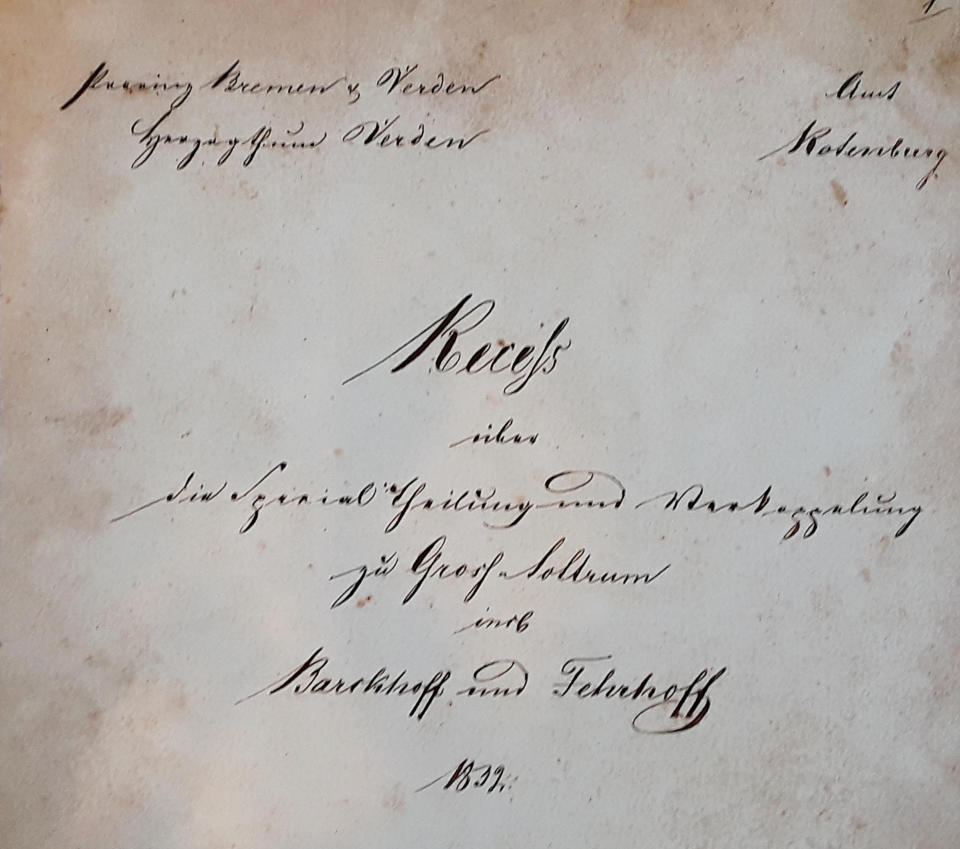 1
Provinz Bremen & Verden
Amt
Herzogthum Verden
Rotenburg
Recess
über
die Special Theilung und Verkoppelung
zu Gross-Sottrum
incl
Barckhoff und Fehrhoff
1832.